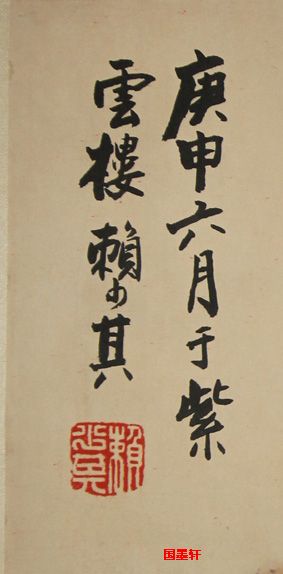 庚申六月于紫
雲樓 賴少其
賴少其
国墨轩